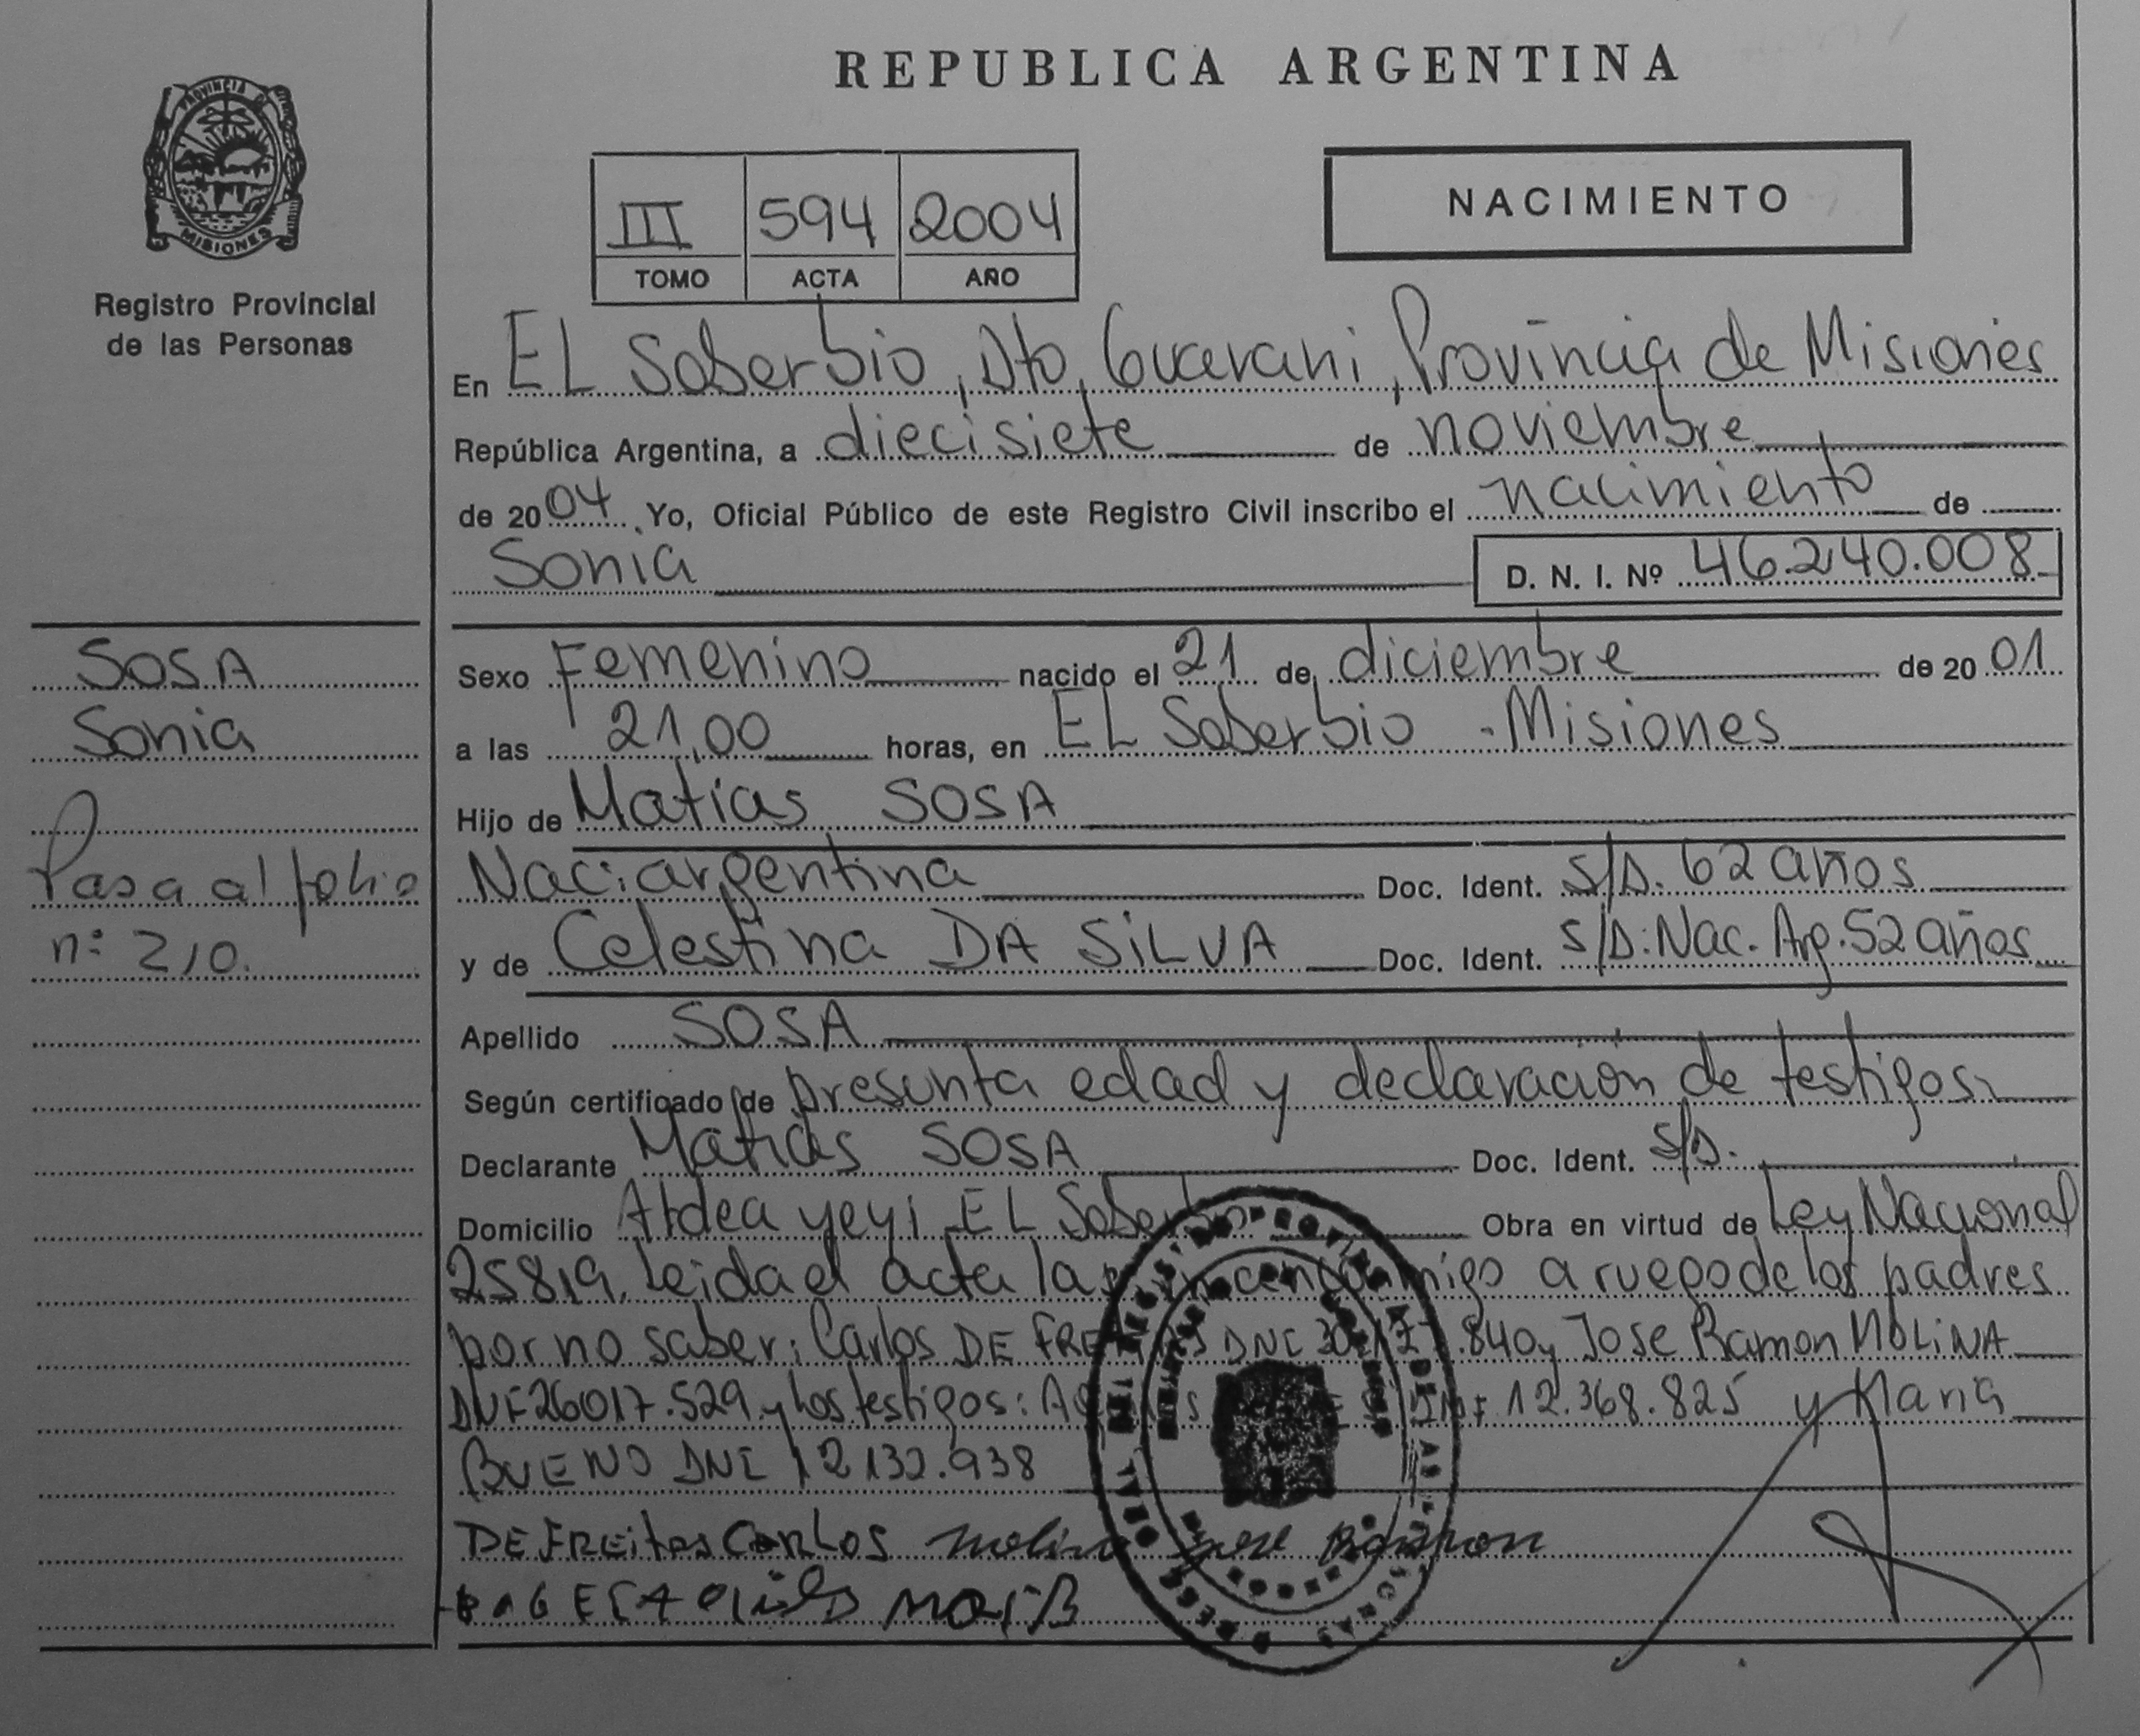 REPUBLICA ARGENTINA
PROVINCIA DE
MISIONES
Registro Provincial
de las Personas
III 594 2004
TOMO ACTA AÑO
NACIMIENTO
En EL Soberbio, Dto, Guarani, Provincia de Misiones
República Argentina, a diecisiete de noviembre
de 2004. Yo, Oficial Público de este Registro Civil inscribo el nacimiento de
Sonia D. N. I. Nº 46.240.008
SOSA
Sonia
Pasa al folio
n: 210.
Sexo Femenino nacido el 21 de diciembre de 2001
a las 21,00 horas, en EL Soberbio - Misiones
Hijo de Matias SOSA
Nac: argentina Doc. Ident. S/D. 62 años
y de Celestina DA SILVA Doc. Ident. S/D. Nac. Arg. 52 años
Apellido SOSA
Según certificado de presunta edad y declaración de testigos
Declarante Matias SOSA Doc. Ident. S/D.
Domicilio Aldea yeyi EL Soberbio Obra en virtud de Ley Nacional
25819. Leida el acta la conmigo a ruego de los padres
por no saber: Carlos DE FREITAS DNI .840 y Jose Ramon MOLINA
DNI 26017.529 y los testigos: 12.368.825 y Maria
BUENO DNI 12132.938
DE FREITAS CARLOS Molina Jose Ramon